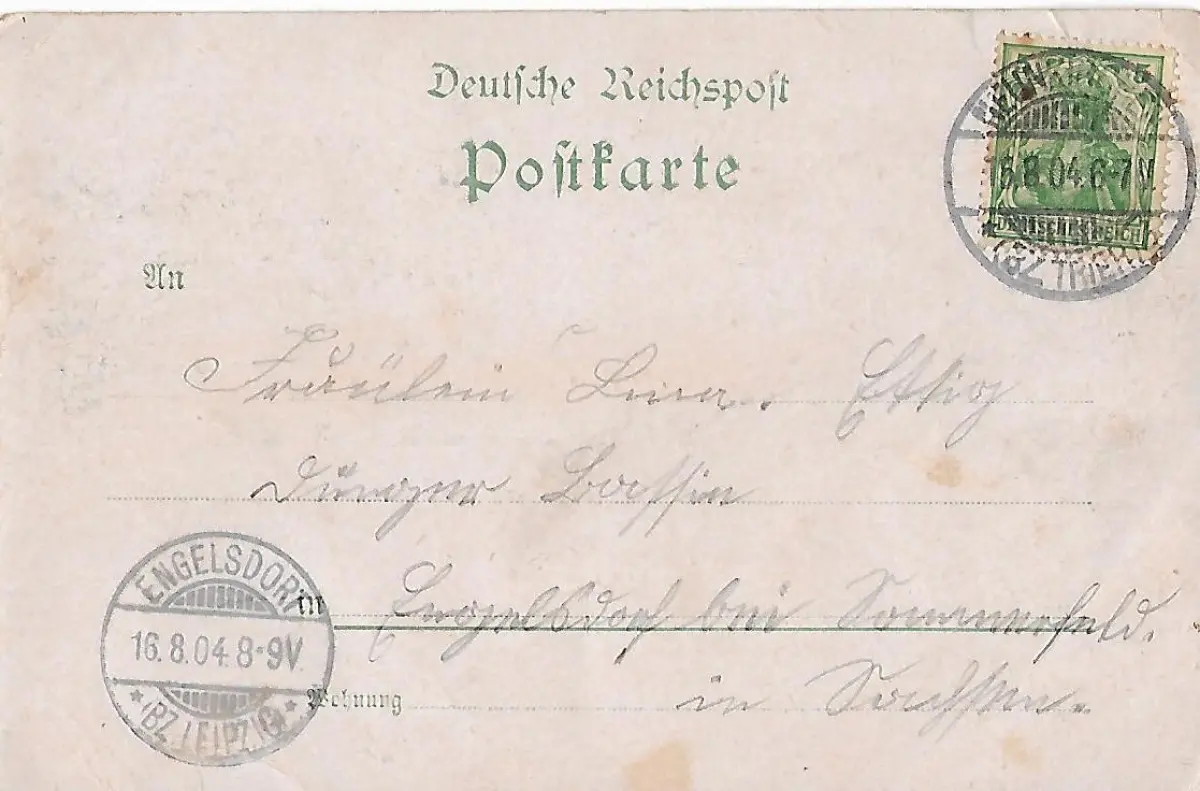 Deutsche Reichspost
Postkarte
5
6-7N
DEUTSCHES REICH
(BZ TRIER)
An
Fräulein Lina Ettig
Bassin
ENGELSDORF
16.8.04.8-9V.
* (BZ LEIPZIG) *
in Engelsdorf bei Sommerfeld.
Wohnung in Sachsen.